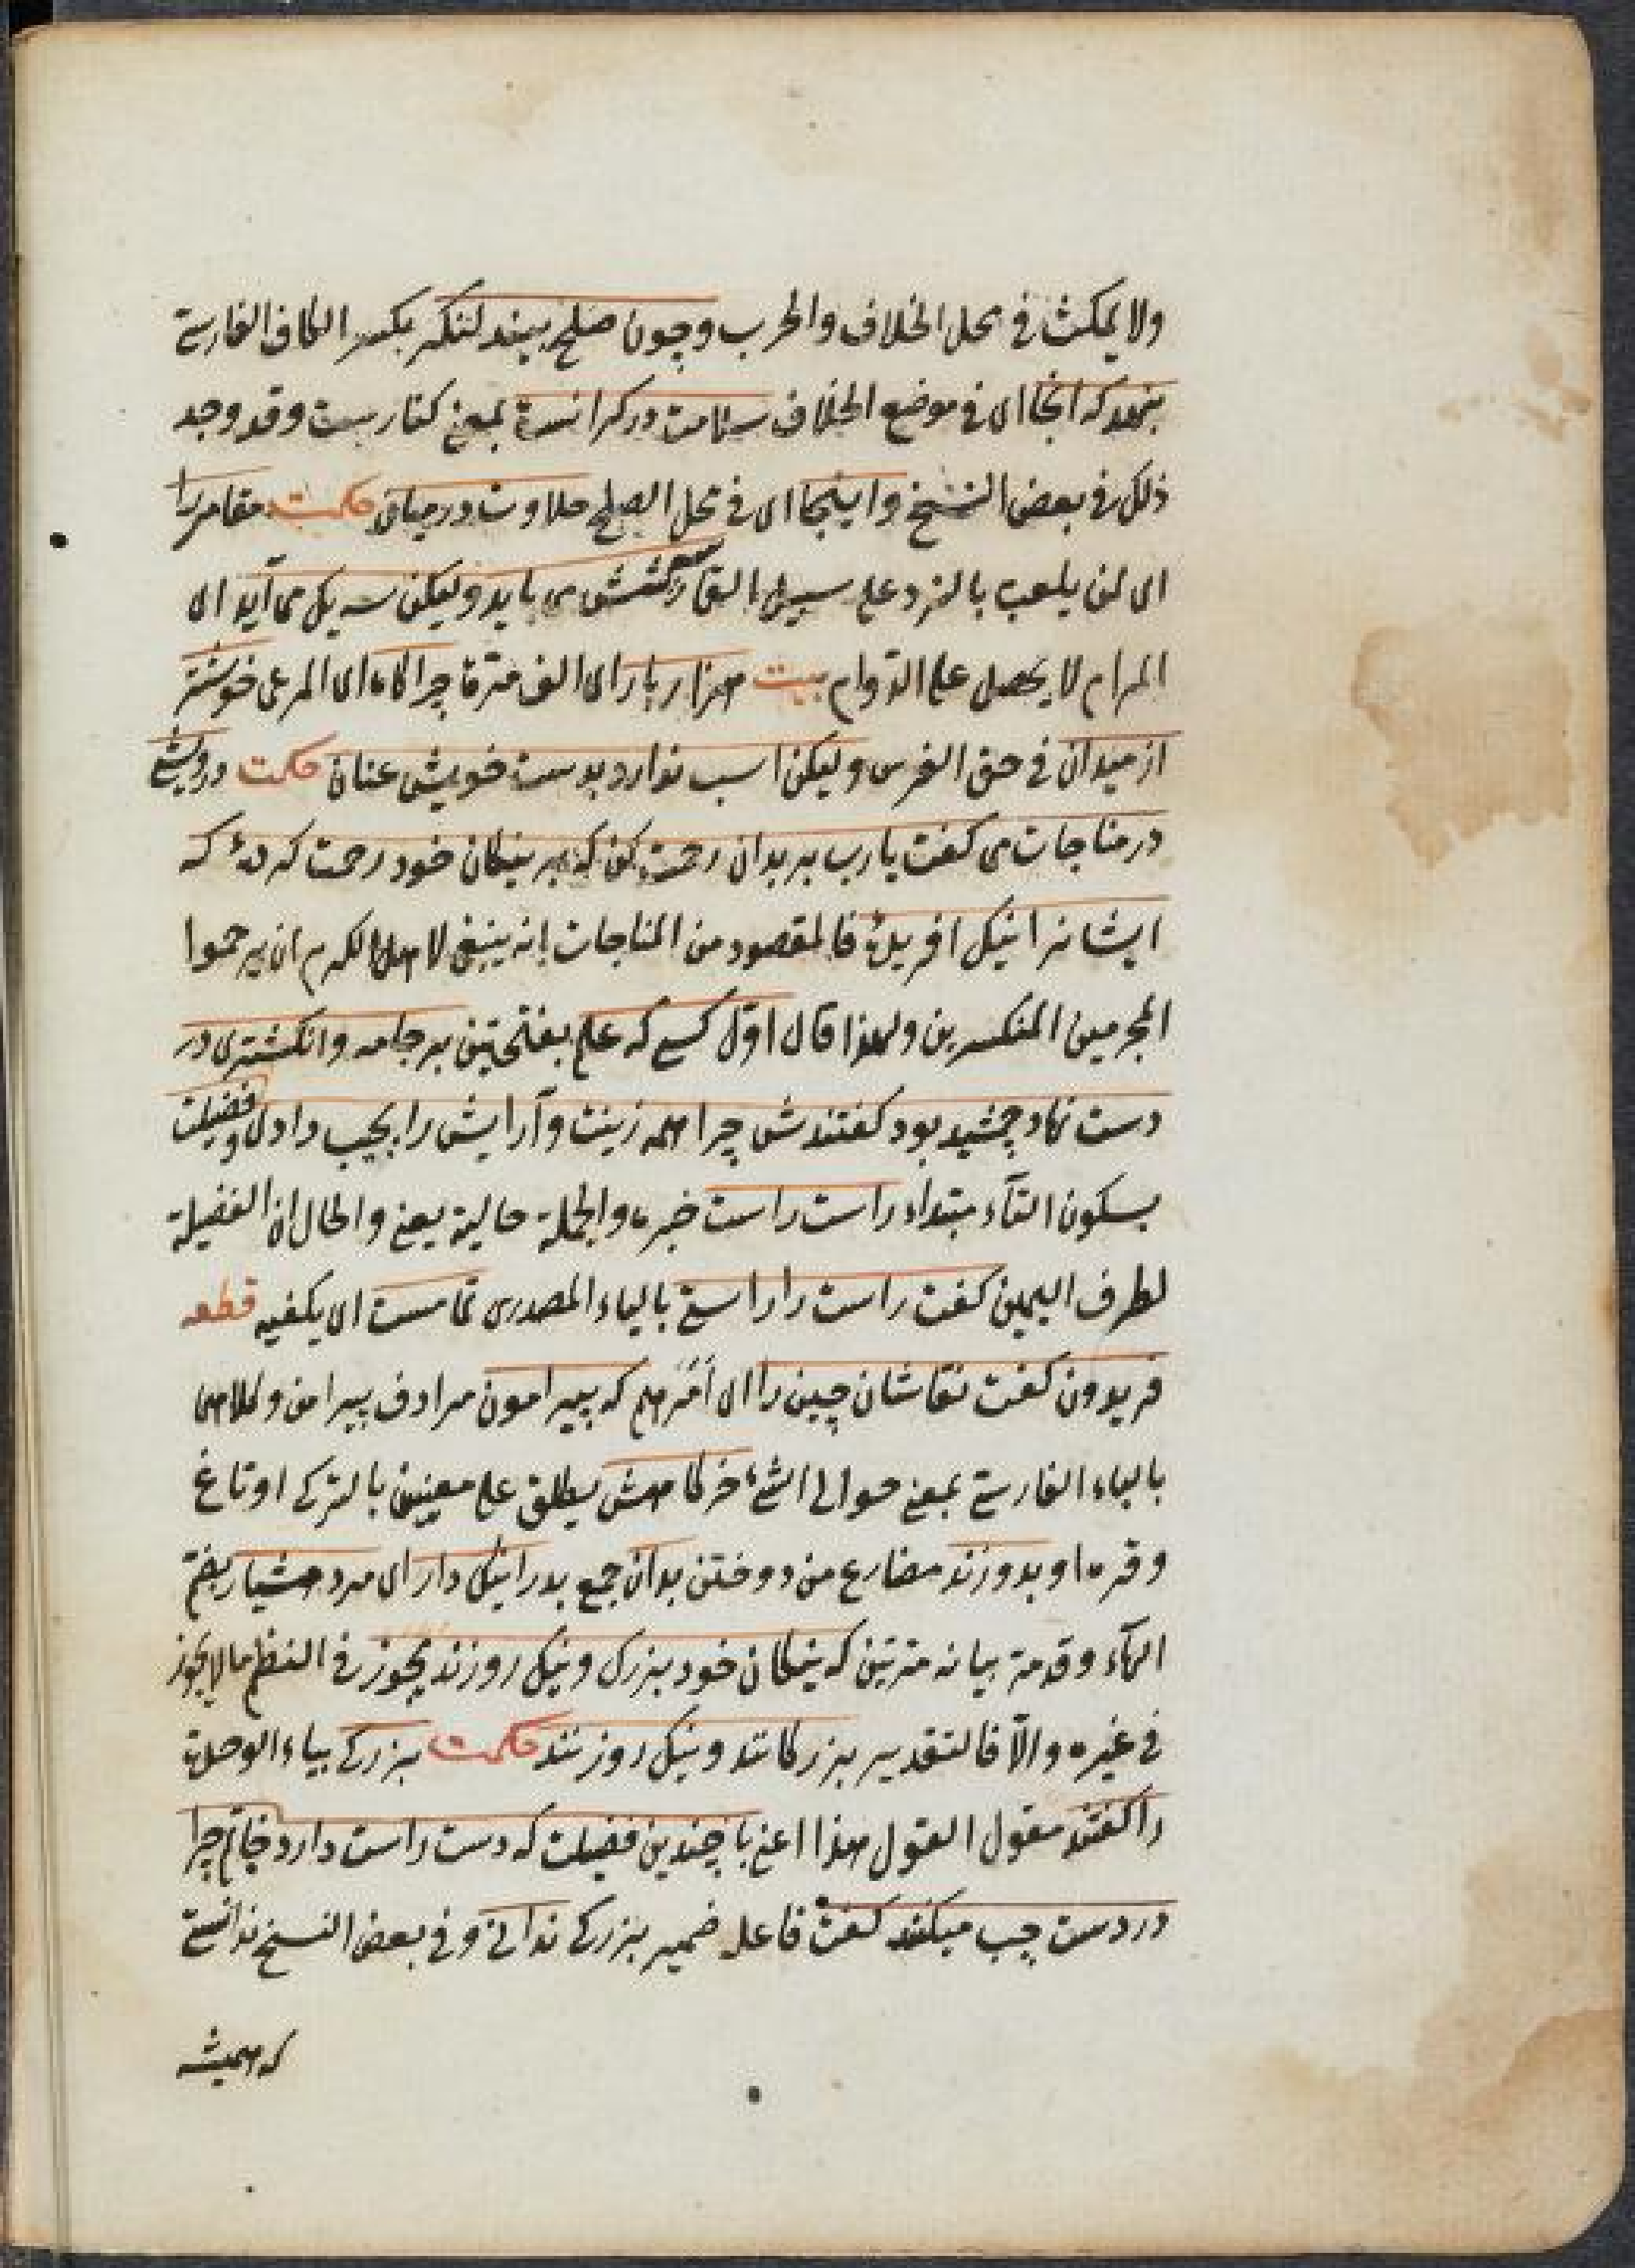 ولا يمكث فى محل الخلاف والحرب وچون صلح بيند لنگر بكسر الكاف الفارسية
بنهد كه انجا اى فى موضع الخلاف سلامت در كرانست بمعنى كنارست وقد وجد
ذلك فى بعض النسخ واينجا اى فى محل الصلح حلاوت در ميان حكمت مقامر را
اى لمن يلعب بالنرد على سبيل القمار سه شش مى بايد وليكن سه يك مى آيد اى
المرام لا يحصل على الدوام بيت هزار بار اى الف مرة چراكاه اى المرعى خوشتر
از ميدان فى حق الفرس وليكن اسب ندارد بدست خويش عنان حكمت درويشى
در مناجات مى كفت يا رب بر بدان رحمت كن كه بر نيكان خود رحمت كردۀ كه
ايشانرا نيك افريدۀ فالمقصود من المناجات انه ينبغى لاهل الكرم ان يرحموا
المجرمين المنكسرين ولهذا قال اول كسى كه علم بفتحتين بر جامه وانكشترى در
دست نهاد جمشيد بود كفتندش چرا همه زينت وآرايش را بچپ دادى وفضيلت
بسكون التآء مبتداء راست راست خبره والجملة حالية يعنى والحال ان الفضيلة
لطرف اليمين كفت راست را راستى بالياء المصدرى تمامست اى يكفيه قطعه
فريدون كفت نقاشان چين را اى امرهم كه پيرامون مرادف پيرامن وكلاهما
بالباء الفارسى بمعنى حوالى الشئ خركاهش يطلق على معنيين بالتركى اوتاغ
وقره او بدوزند مضارع من دوختن بدان جمع بد را نيك دار اى مرد هشيار بضم
الهآء وقد مر بيانه مرتين كه نيكان خود بزرك ونيك روزند يجوز فى النظم ما لا يجوز
فى غيره والّا فالتقدير بزركانند ونيك روزنند حكمت بزركى بياء الوحدة
را كفتند مقول القول هذا اعنى با چندين فضيلت كه دست راست دارد خاتم چرا
در دست چپ ميكنند كفت فاعله ضمير بزركى ندانى وفى بعض النسخ ندانستى
كه هميشه